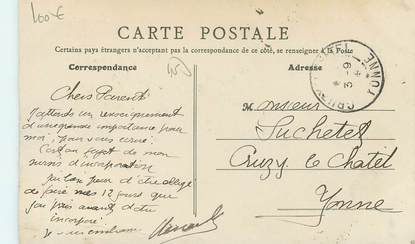 100€
CARTE POSTALE
Certains pays étrangers n'acceptant pas la correspondance de ce côté, se renseigner à la Poste
Correspondance
Adresse
Chers Parents
J'attends un renseignement
d'une grande importance pour
moi, pour vous écrire.
C'est au sujet de mon
sursis d'incorporation
d'être obligé
de faire mes 12 jours que
avant d'être
incorporé
Je vous embrasse
Monsieur
Suchetet
Cruzy le Chatel
Yonne
3-9
YONNE